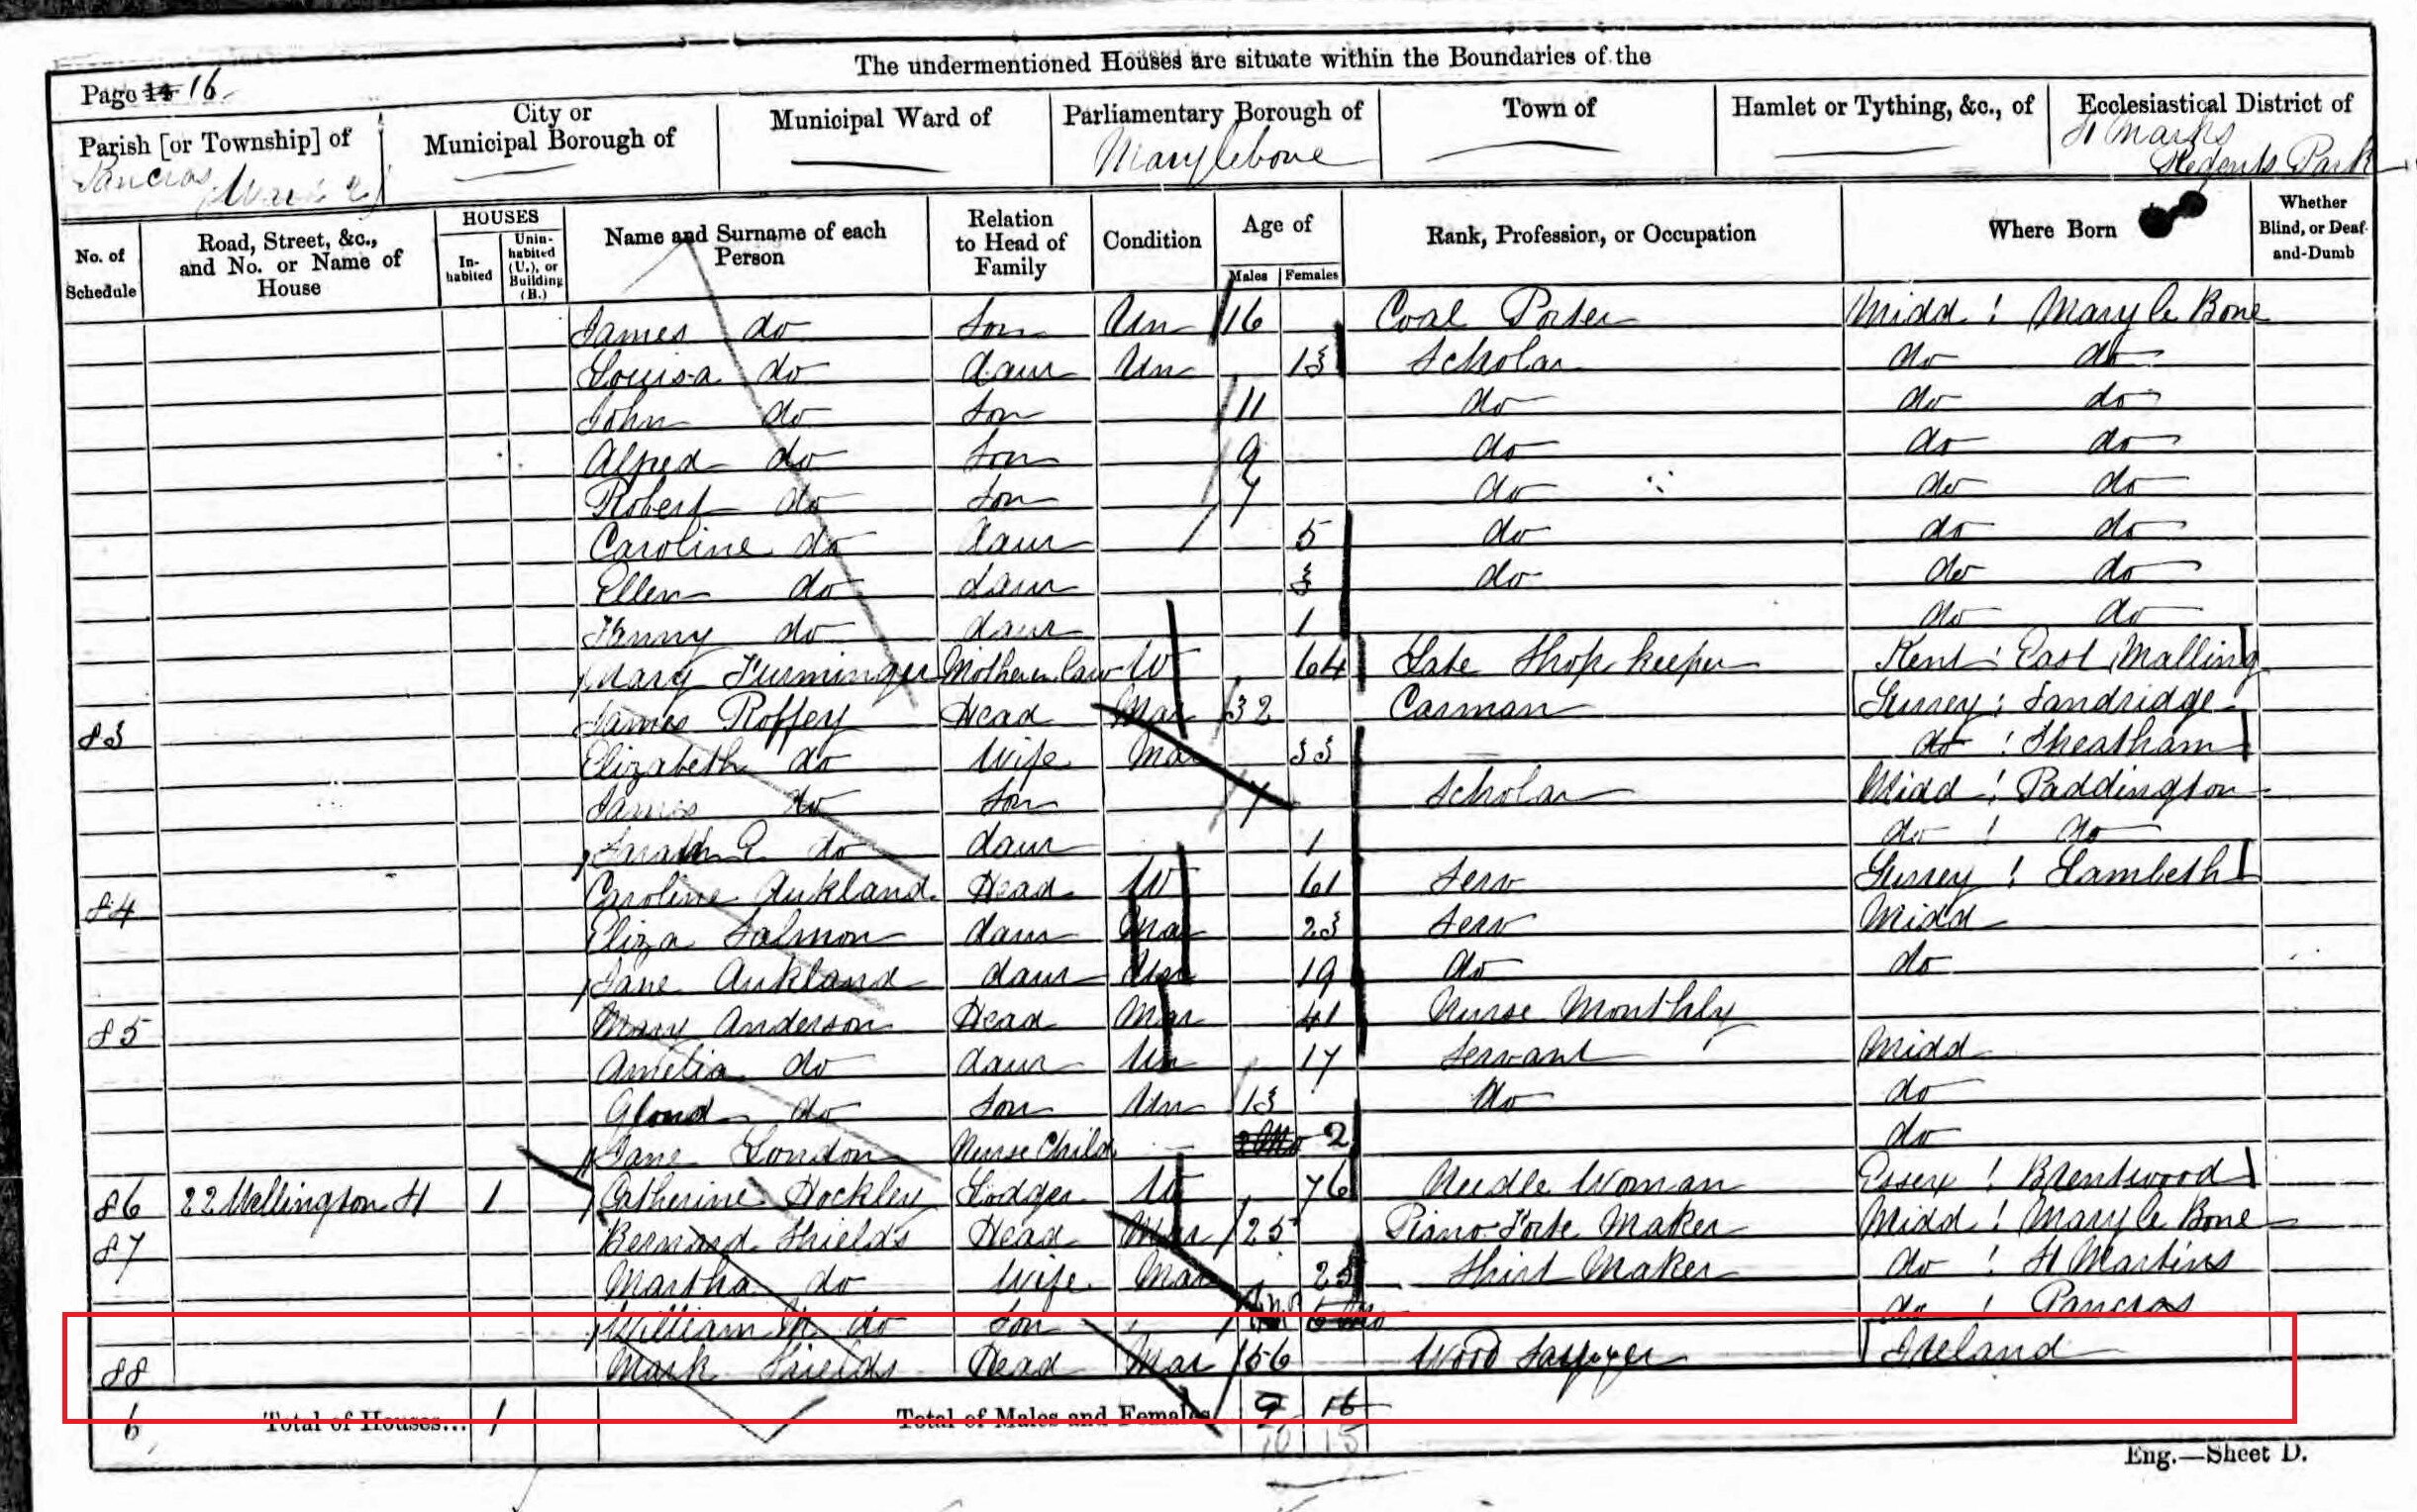 The undermentioned Houses are situate within the Boundaries of the
Page 14 16
Parish [or Township] of Pancras
City or Municipal Borough of
Municipal Ward of
Parliamentary Borough of Marylebone
Town of
Hamlet or Tything, &c., of
Ecclesiastical District of St Marks Regents Park
No. of Schedule
Road, Street, &c., and No. or Name of House
HOUSES
In-habited
Unin-habited (U.), or Building (B.)
Name and Surname of each Person
Relation to Head of Family
Condition
Age of
Males Females
Rank, Profession, or Occupation
Where Born
Whether Blind, or Deaf-and-Dumb
James do Son Un 16 Coal Porter Midd : Mary le Bone
Louisa do daur Un 13 Scholar do do
John do Son 11 do do do
Alfred do Son 9 do do do
Robert do Son 7 do do do
Caroline do daur 5 do do do
Ellen do daur 3 do do do
Fanny do daur 1 do do
Mary Furminger Mother in law W 64 Late Shop keeper Kent : East Malling
83 James Roffey Head Mar 32 Carman Surrey : Tandridge
Elizabeth do Wife Mar 33 do :
James do Son 7 Scholar Midd : Paddington
Sarah do daur 1 do : do
84 Caroline Aukland Head W 61 Serv Surrey : Lambeth
Eliza Salmon daur Mar 23 Serv Midd
Jane Aukland daur Un 19 do do
85 Mary Anderson Head Mar 41 Nurse Monthly
Amelia do daur Un 17 Servant Midd
do Son Un 13 do do
Jane London Nurse Child 2 do
86 22 Wellington St 1 Catherine Hockley Lodger W 76 Needle Woman Essex : Brentwood
87 Bernard Shields Head Mar 25 Piano Forte Maker Midd : Mary le Bone
Martha do Wife Mar 25 Shirt Maker do : St Martins
William do Son do : Pancras
88 Mark Shields Head Mar 56 Wood Ireland
6 Total of Houses... 1 Total of Males and Females 9 16
10 15
Eng.—Sheet D.